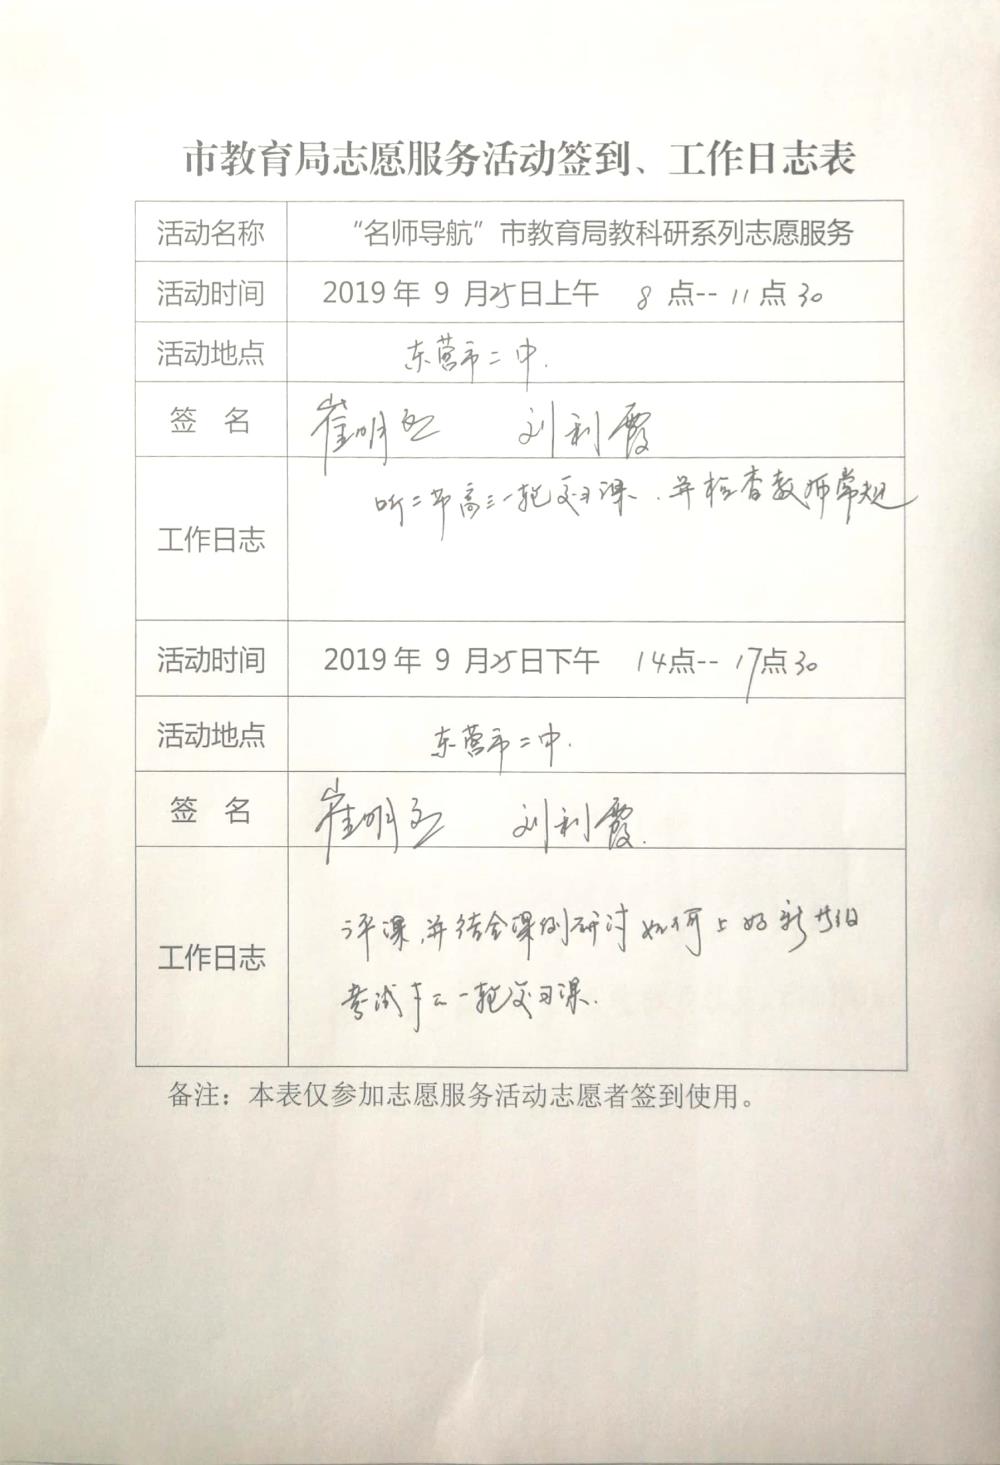 市教育局志愿服务活动签到、工作日志表
活动名称 “名师导航”市教育局教科研系列志愿服务
活动时间 2019年 9 月25日上午 8 点--11点30
活动地点 东营市二中.
签 名 崔明 刘利霞
听二节高三一轮复习课、并检查教师常规
工作日志
活动时间 2019年 9 月25日下午 14点--17点30
活动地点 东营市二中.
签 名 崔明 刘利霞.
评课,并结合课例研讨如何上好新
工作日志
考试 一轮复习课.
备注：本表仅参加志愿服务活动志愿者签到使用。